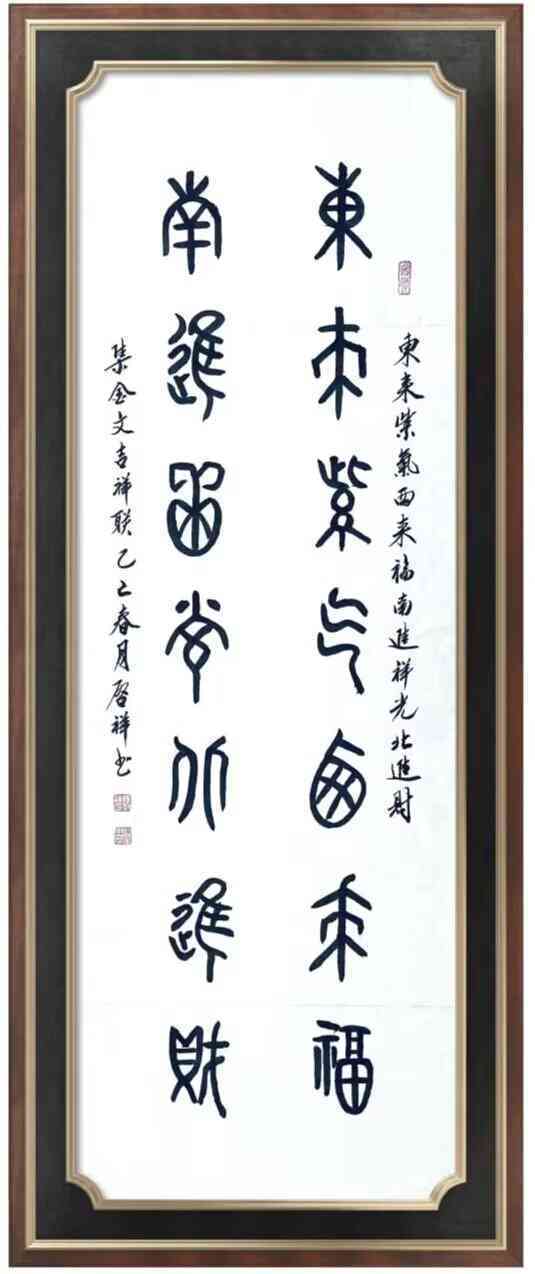 東来紫氣西来福南進祥光北進財
東來紫气西來福
南進祥光北進財
集金文吉祥联乙巳春月啓祥书